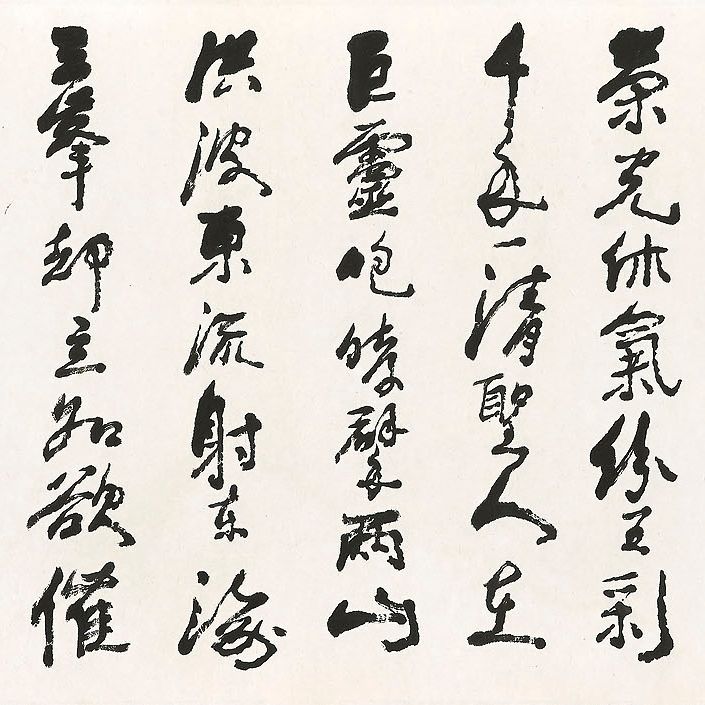 榮光休氣紛五彩
千年一清聖人在
巨靈咆哮擘兩山
洪波東流射東海
三峯却立如欲催